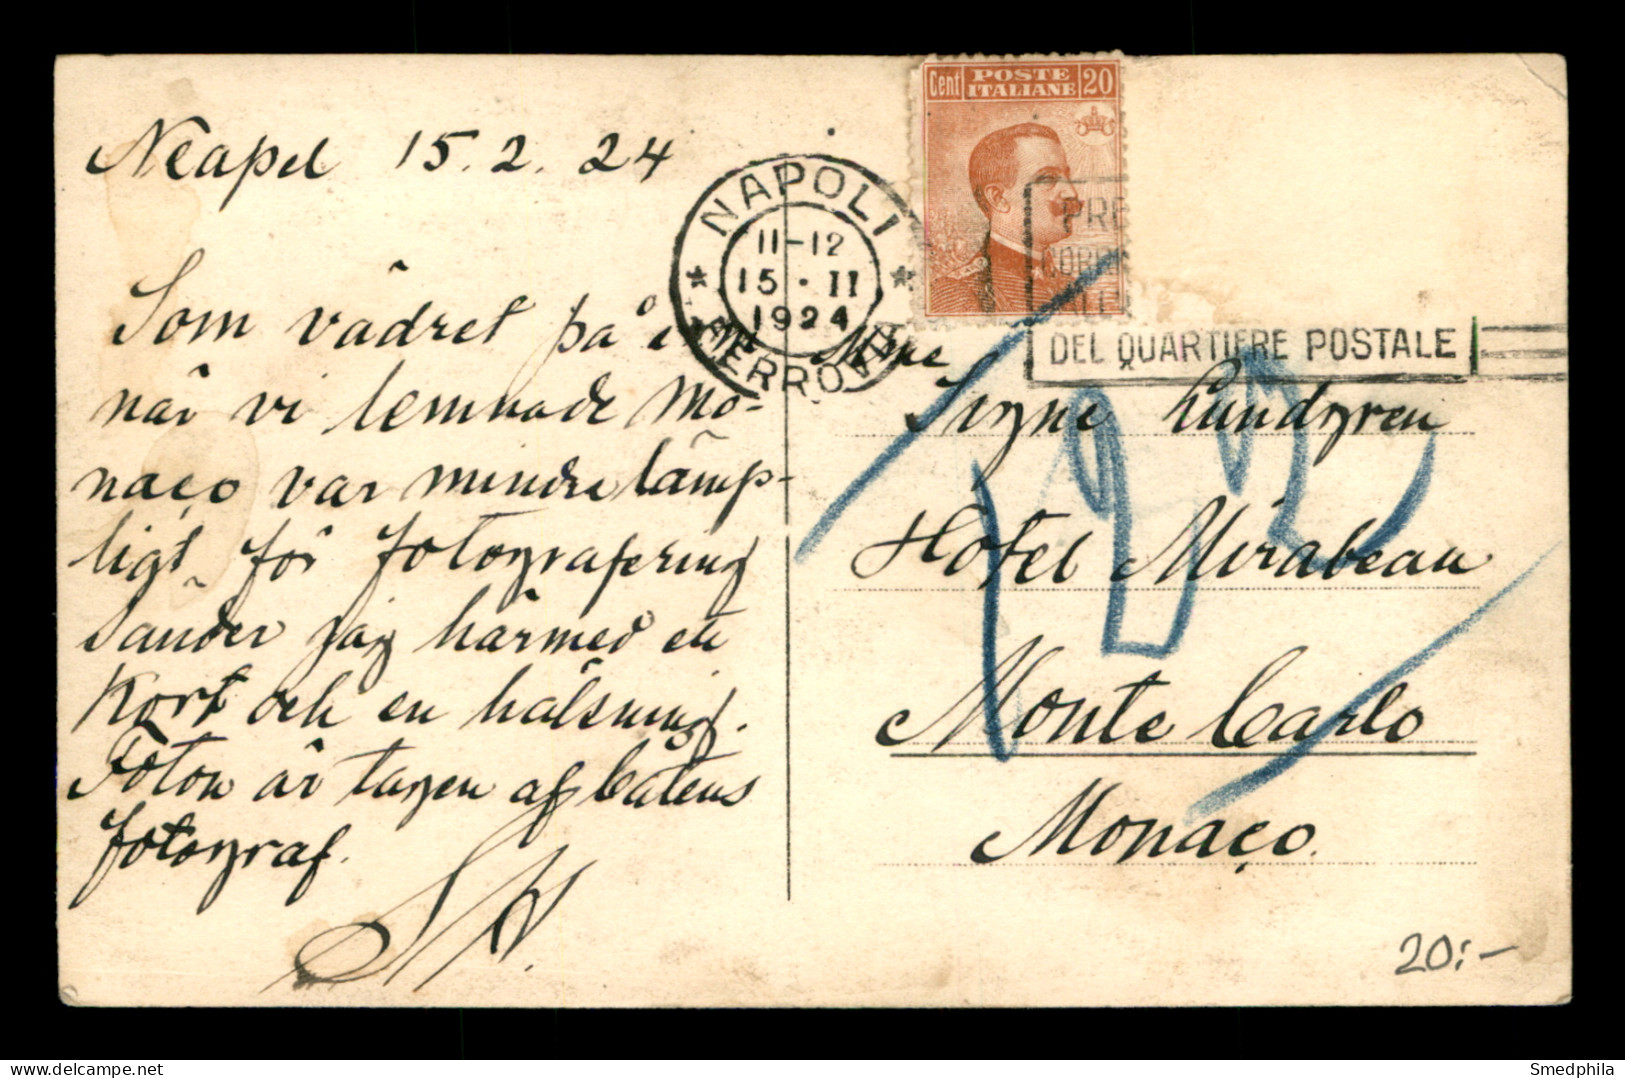 Neapel 15.2.24
Som vädret på
när vi lemnade Mo-
naço var mindre lämp-
ligt för fotografering
sänder jag härmed ett
kort och en hälsning.
Foton är tagen af båtens
fotograf.
SH.
Cent POSTE ITALIANE 20
NAPOLI
11-12
15·II
1924
FERROVIA
PRE
CORR
DEL QUARTIERE POSTALE
Mme
Signe Lundgren
Hotel Mirabeau
Monte Carlo
Monaço.
122
20:-
Smedphila